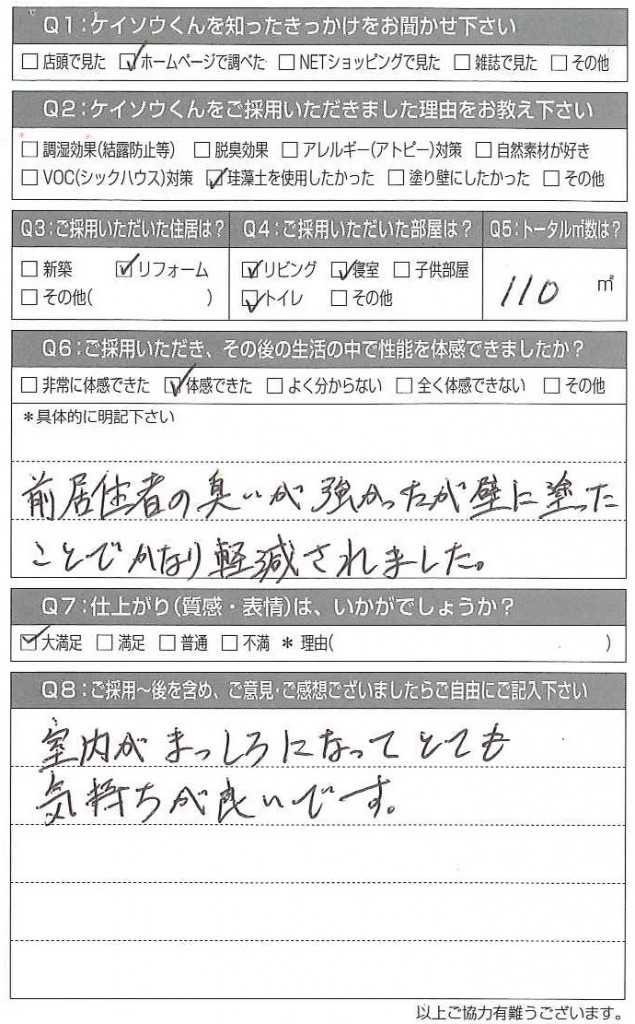 Q1:ケイソウくんを知ったきっかけをお聞かせ下さい
□店頭で見た ☑ホームページで調べた □NETショッピングで見た □雑誌で見た □その他
Q2:ケイソウくんをご採用いただきました理由をお教え下さい
□調湿効果(結露防止等) □脱臭効果 □アレルギー(アトピー)対策 □自然素材が好き
□VOC(シックハウス)対策 ☑珪藻土を使用したかった □塗り壁にしたかった □その他
Q3:ご採用いただいた住居は? Q4:ご採用いただいた部屋は? Q5:トータル㎡数は?
□新築 ☑リフォーム ☑リビング ☑寝室 □子供部屋 110 ㎡
□その他( ) ☑トイレ □その他
Q6:ご採用いただき、その後の生活の中で性能を体感できましたか?
□非常に体感できた ☑体感できた □よく分からない □全く体感できない □その他
*具体的に明記下さい
前居住者の臭いが強かったが壁に塗った
ことでかなり軽減されました。
Q7:仕上がり(質感・表情)は、いかがでしょうか?
☑大満足 □満足 □普通 □不満 *理由( )
Q8:ご採用~後を含め、ご意見・ご感想ございましたらご自由にご記入下さい
室内がまっしろになってとても
気持ちが良いです。
以上ご協力有難うございます。